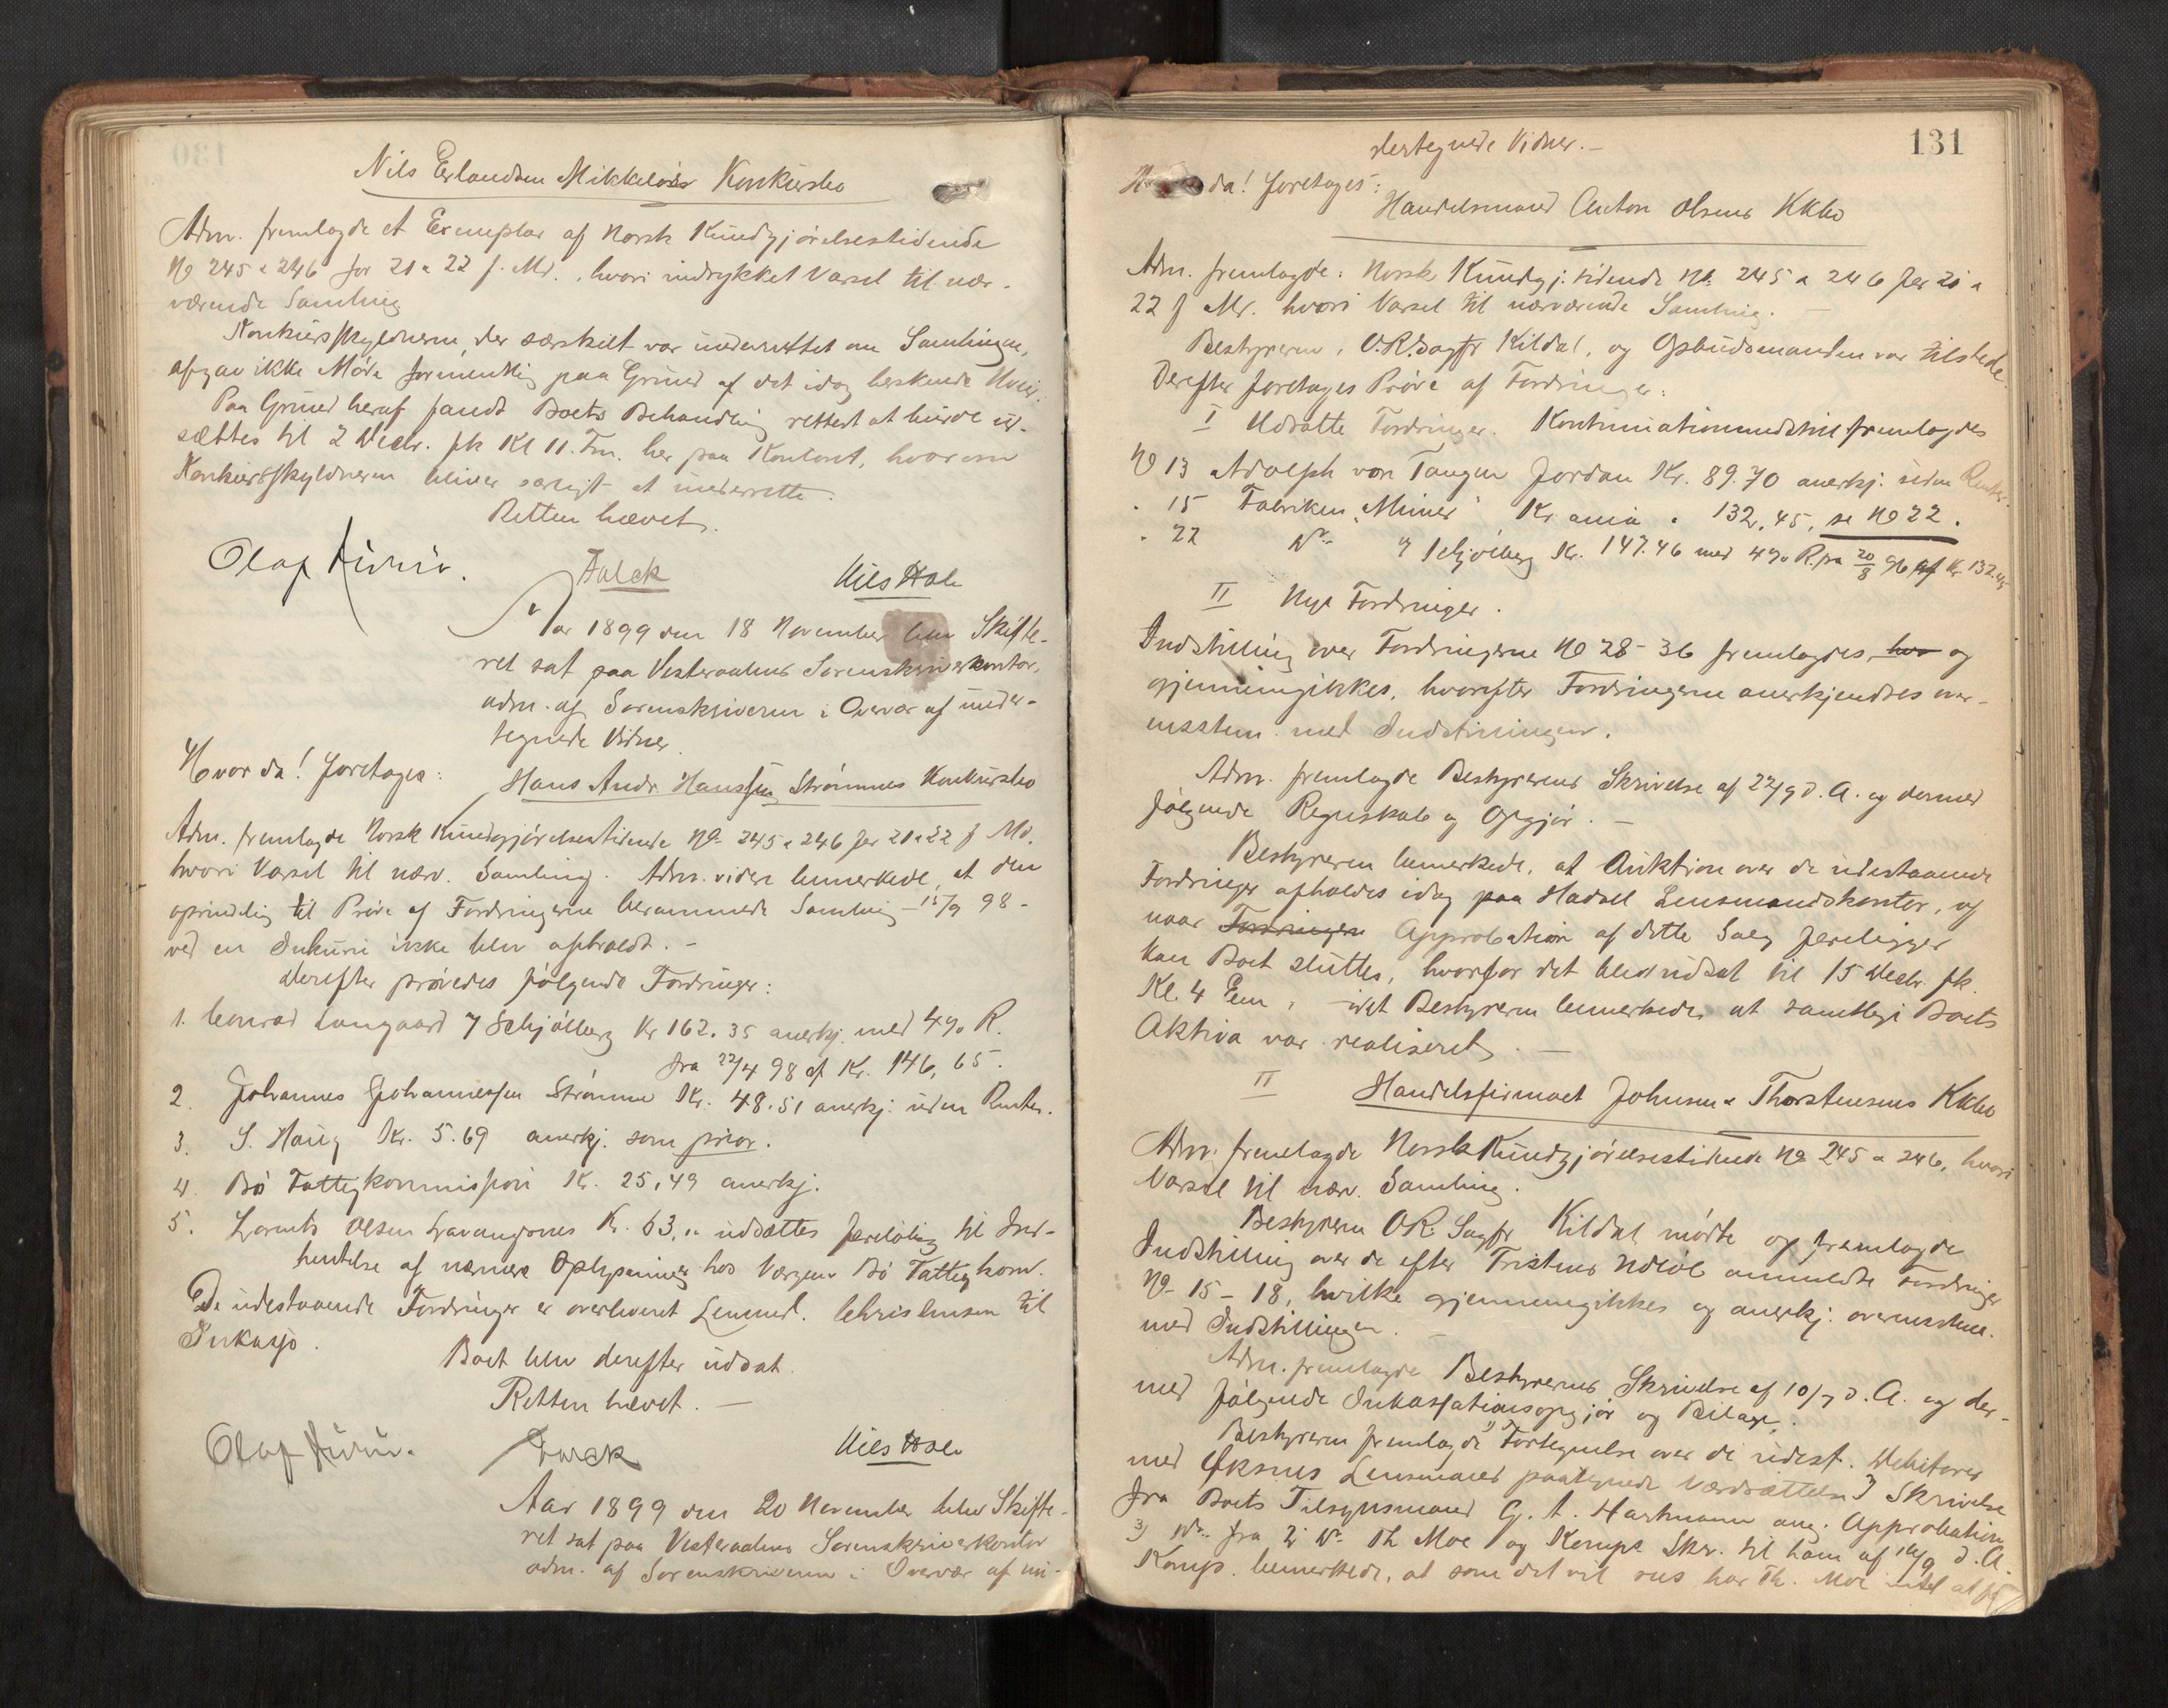 Nils Erlandsen Mikkelsens Konkursbo
Adm. fremlagde et Exemplar af Norsk Kundgjørelsestidende
No 245 & 246 for 21 & 22 f. Md., hvori indrykket Varsel til nær-
værende Samling
Konkursskyldneren, der særskilt var underrettet om Samlingen,
afgav ikke Møde formentlig paa Grund af det idag herskende
Paa Grund heraf fandt Boets Behandling rettest at burde ud-
sættes til 2 Decbr. fk Kl 11. Fm. her paa Kontoret, hvorom
Konkursskyldneren bliver særligt at underrette.
Retten hævet.
Olaf
Falck
Nils Hole
Aar 1899 den 18 November blev Skifte-
ret sat paa Vesteraalens Sorenskriverkontor,
adm. af Sorenskriveren i Overvær af under-
tegnede Vidner.
Hvor da! foretages:
Hans Andr. Hanssen Strømmes Konkursbo
Adm. fremlagde Norsk Kundgjørelsestidende No 245 & 246 for 21 & 22 f Md.
hvori Varsel til nærv. Samling. Adm. videre bemerkede, at den
oprindelig til Prøve af Fordringerne berammede Samling - 15/9 98 -
ved en Inkurie ikke blev afholdt. -
Derefter prøvedes følgende Fordringer:
1. Conrad Langaard 7 Schjølberg Kr 162.35 anerkj. med 4% R.
fra 22/4 98 af Kr. 146,65.
2. Johannes Johannessen Strømme Kr. 48.51 anerkj. uden Renter.
3. S. Haug Kr. 5.69 anerkj. som prior.
4 Bø Fattigkommission Kr. 25,49 anerkj.
5. Lorents Olsen Kr. 63, " udsættes foreløbig til Ind-
hentelse af nærmere Oplysninger hos Værgen Bø Fattigkom.
De udestaaende Fordringer er overleveret Lensmd. Christensen til
Inkasso.
Boet blev derefter udsat.
Retten hævet. -
Olaf
Falck
Nils Hole
Aar 1899 den 20 November blev Skifte-
ret sat paa Vesteraalens Sorenskriverkontor
adm. af Sorenskriveren i Overvær af un-
131
dertegnede Vidner. -
da! foretages:
Handelsmand Anton Olsens Kkbo
Adm. fremlagde: Norsk Kundgj. tidende No. 245 & 246 for 21 &
22 f Md. hvori Varsel til nærværende Samling. -
Bestyreren, O.R.Sagfr Kildal, og Opbudsmanden var tilstede.
Derefter foretages Prøve af Fordringer:
I Udsatte Fordringer. fremlagdes
No 13 Adolph von Tangen Jordan Kr. 89.70 anerkj. uden Renter.
" 15 Fabriken "Mimer" Kr ania " 132,45, se No 22.
" 22 Do 7 Schjølberg Kr. 147.46 med 4% R. fra 20/8 96 af Kr. 132.45
II Nye Fordringer.
Indstilling over Fordringerne No 28 - 36 fremlagdes, hvo og
gjennemgikkes, hvorefter Fordringerne anerkjendtes over-
ensstem. med Indstillingen.
Adm. fremlagde Bestyrerens Skrivelse af 22/9 d. A. og dermed
følgende Regnskab og Opgjør. -
Bestyreren bemerkede, at Auktion over de udestaaende
Fordringer afholdes idag paa Hadsel Lensmandskontor, og
naar Fordringen Approbation af dette Salg foreligger
kan Boet sluttes, hvorfor det blev udsat til 15 Decbr. fk.
Kl. 4 Em, idet Bestyreren bemerkede, at samtlige Boets
Aktiva var realiseret. -
II Handelsfirmaet Johnsen & Thorstensens Kkbo
Adm. fremlagde Norsk Kundgjørelsestidende No 245 & 246, hvori
Varsel til nærv. Samling.
Bestyreren OR. Sagfr Kildal mødte og fremlagde
Indstilling over de efter Fristens Udløb anmeldte Fordringer
No. 15 - 18, hvilke gjennemgikkes og anerkj. overensstem.
med Indstillingen. -
Adm. fremlagde Bestyrerens Skrivelse af 10/7 d. A. og der-
med følgende Inkassationsopgjør og Bilage.
Bestyreren fremlagde 1) Fortegnelse over de udest. Debitorer
med Øksnes Lensmand paategnede Værdsættelse 2) Skrivelse
fra Boets Tilsynsmand G. A. Hartmann ang. Approbation
3) Do fra 2 Do Th Moe og Komps Skr. til ham af 14/9 d. A.
Komp. bemerkede, at som det vil sees har Th. Moe intet at